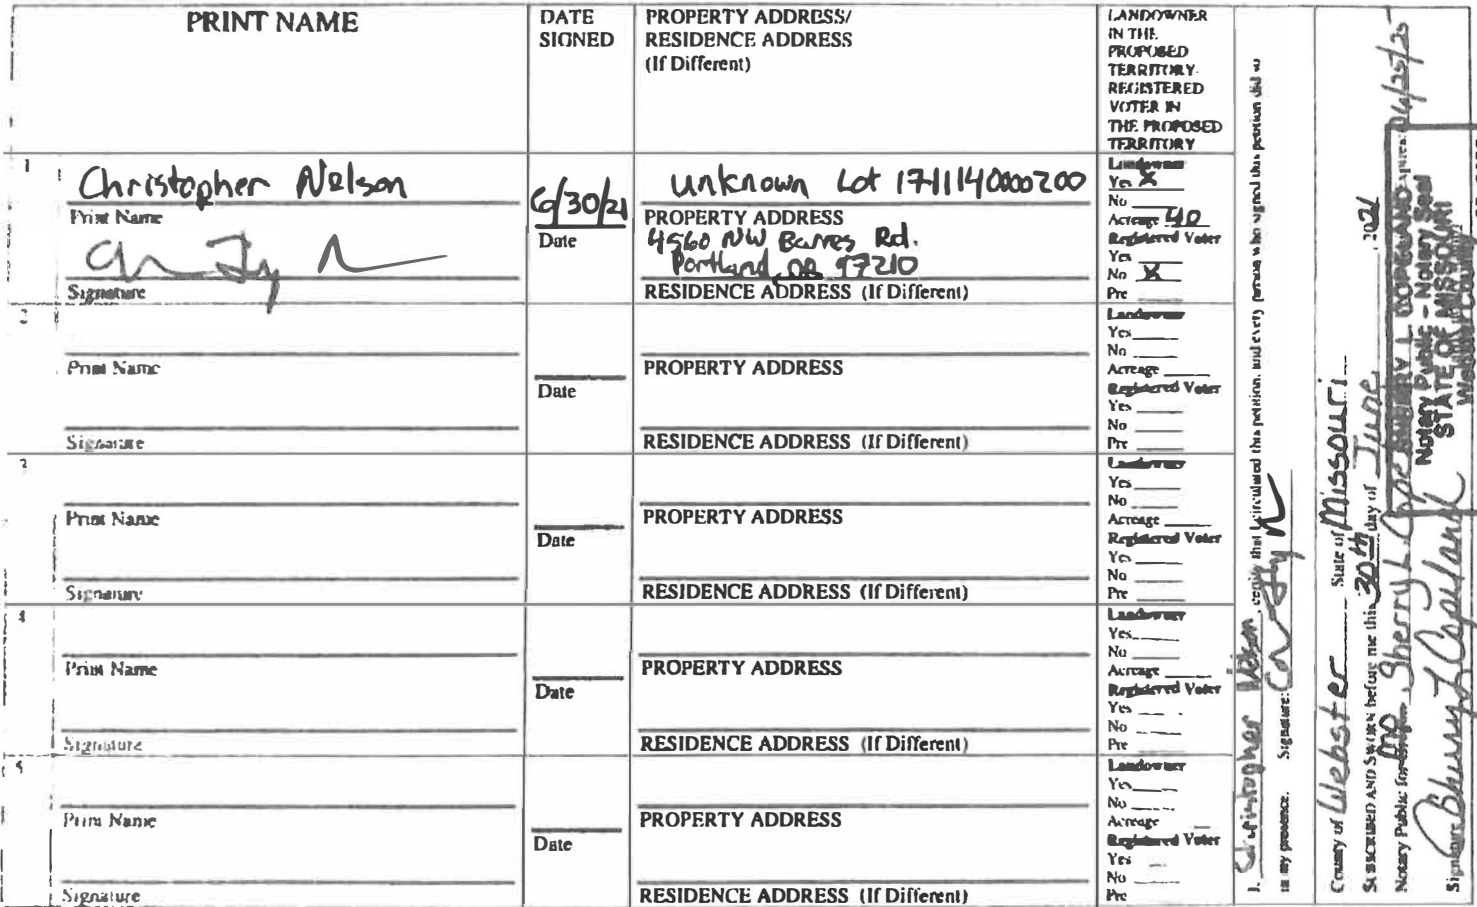 PRINT NAME
DATE
SIGNED
PROPERTY ADDRESS/
RESIDENCE ADDRESS
(If Different)
LANDOWNER
IN THE
PROPOSED
TERRITORY
REGISTERED
VOTER IN
THE PROPOSED
TERRITORY
1
Christopher Nelson
Print Name
Signature
6/30/21
Date
unknown Lot 1711140000200
PROPERTY ADDRESS
4560 NW Barnes Rd.
Portland, OR 97210
RESIDENCE ADDRESS (If Different)
Landowner
Yes X
No
Acreage 40
Registered Voter
Yes
No X
Pre
2
Print Name
Signature
Date
PROPERTY ADDRESS
RESIDENCE ADDRESS (If Different)
Landowner
Yes
No
Acreage
Registered Voter
Yes
No
Pre
3
Print Name
Signature
Date
PROPERTY ADDRESS
RESIDENCE ADDRESS (If Different)
Landowner
Yes
No
Acreage
Registered Voter
Yes
No
Pre
4
Print Name
Signature
Date
PROPERTY ADDRESS
RESIDENCE ADDRESS (If Different)
Landowner
Yes
No
Acreage
Registered Voter
Yes
No
Pre
5
Print Name
Signature
Date
PROPERTY ADDRESS
RESIDENCE ADDRESS (If Different)
Landowner
Yes
No
Acreage
Registered Voter
Yes
No
Pre
I, Christopher Nelson, certify that I circulated this petition, and every person who signed this petition did so
in my presence. Signature:
County of Webster State of Missouri
SUBSCRIBED AND SWORN before me this 30th day of June, 2021
Notary Public for Mo Sherry L Copeland 04/25/25
Signature Sherry L Copeland
SHERRY L COPELAND
Notary Public - Notary Seal
STATE OF MISSOURI
Webster County